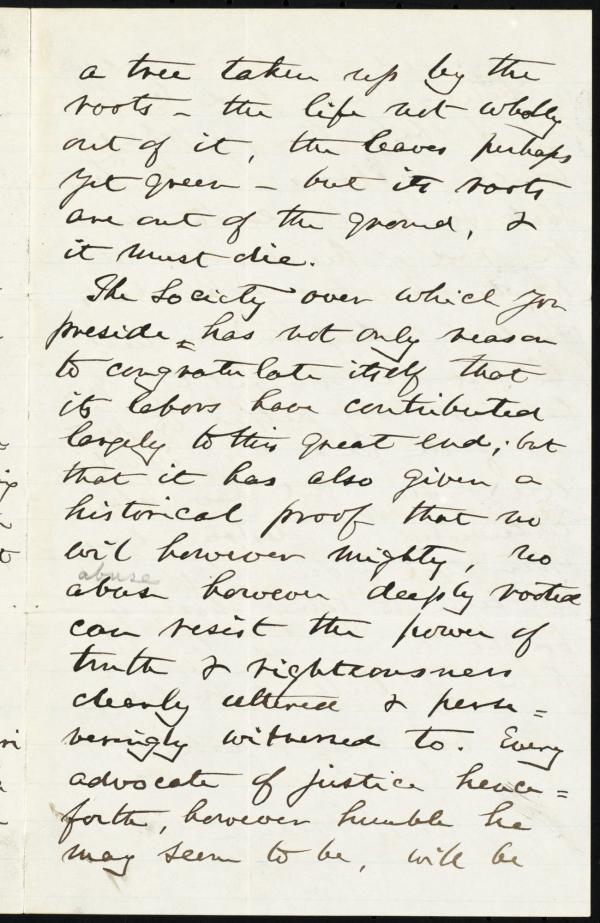 a tree taken up by the
roots - the life not wholly
out of it, the leaves perhaps
yet green - but its roots
are out of the ground, &
it must die.
The Society over which you
preside has not only reason
to congratulate itself that
its labors have contributed
largely to this great end; but
that it has also given a
historical proof that no
evil however mighty, no
abuse
abuse however deeply rooted
can resist the power of
truth & righteousness
clearly uttered & perse=
veringly witnessed to. Every
advocate of justice hence=
forth, however humble he
may seem to be, will be